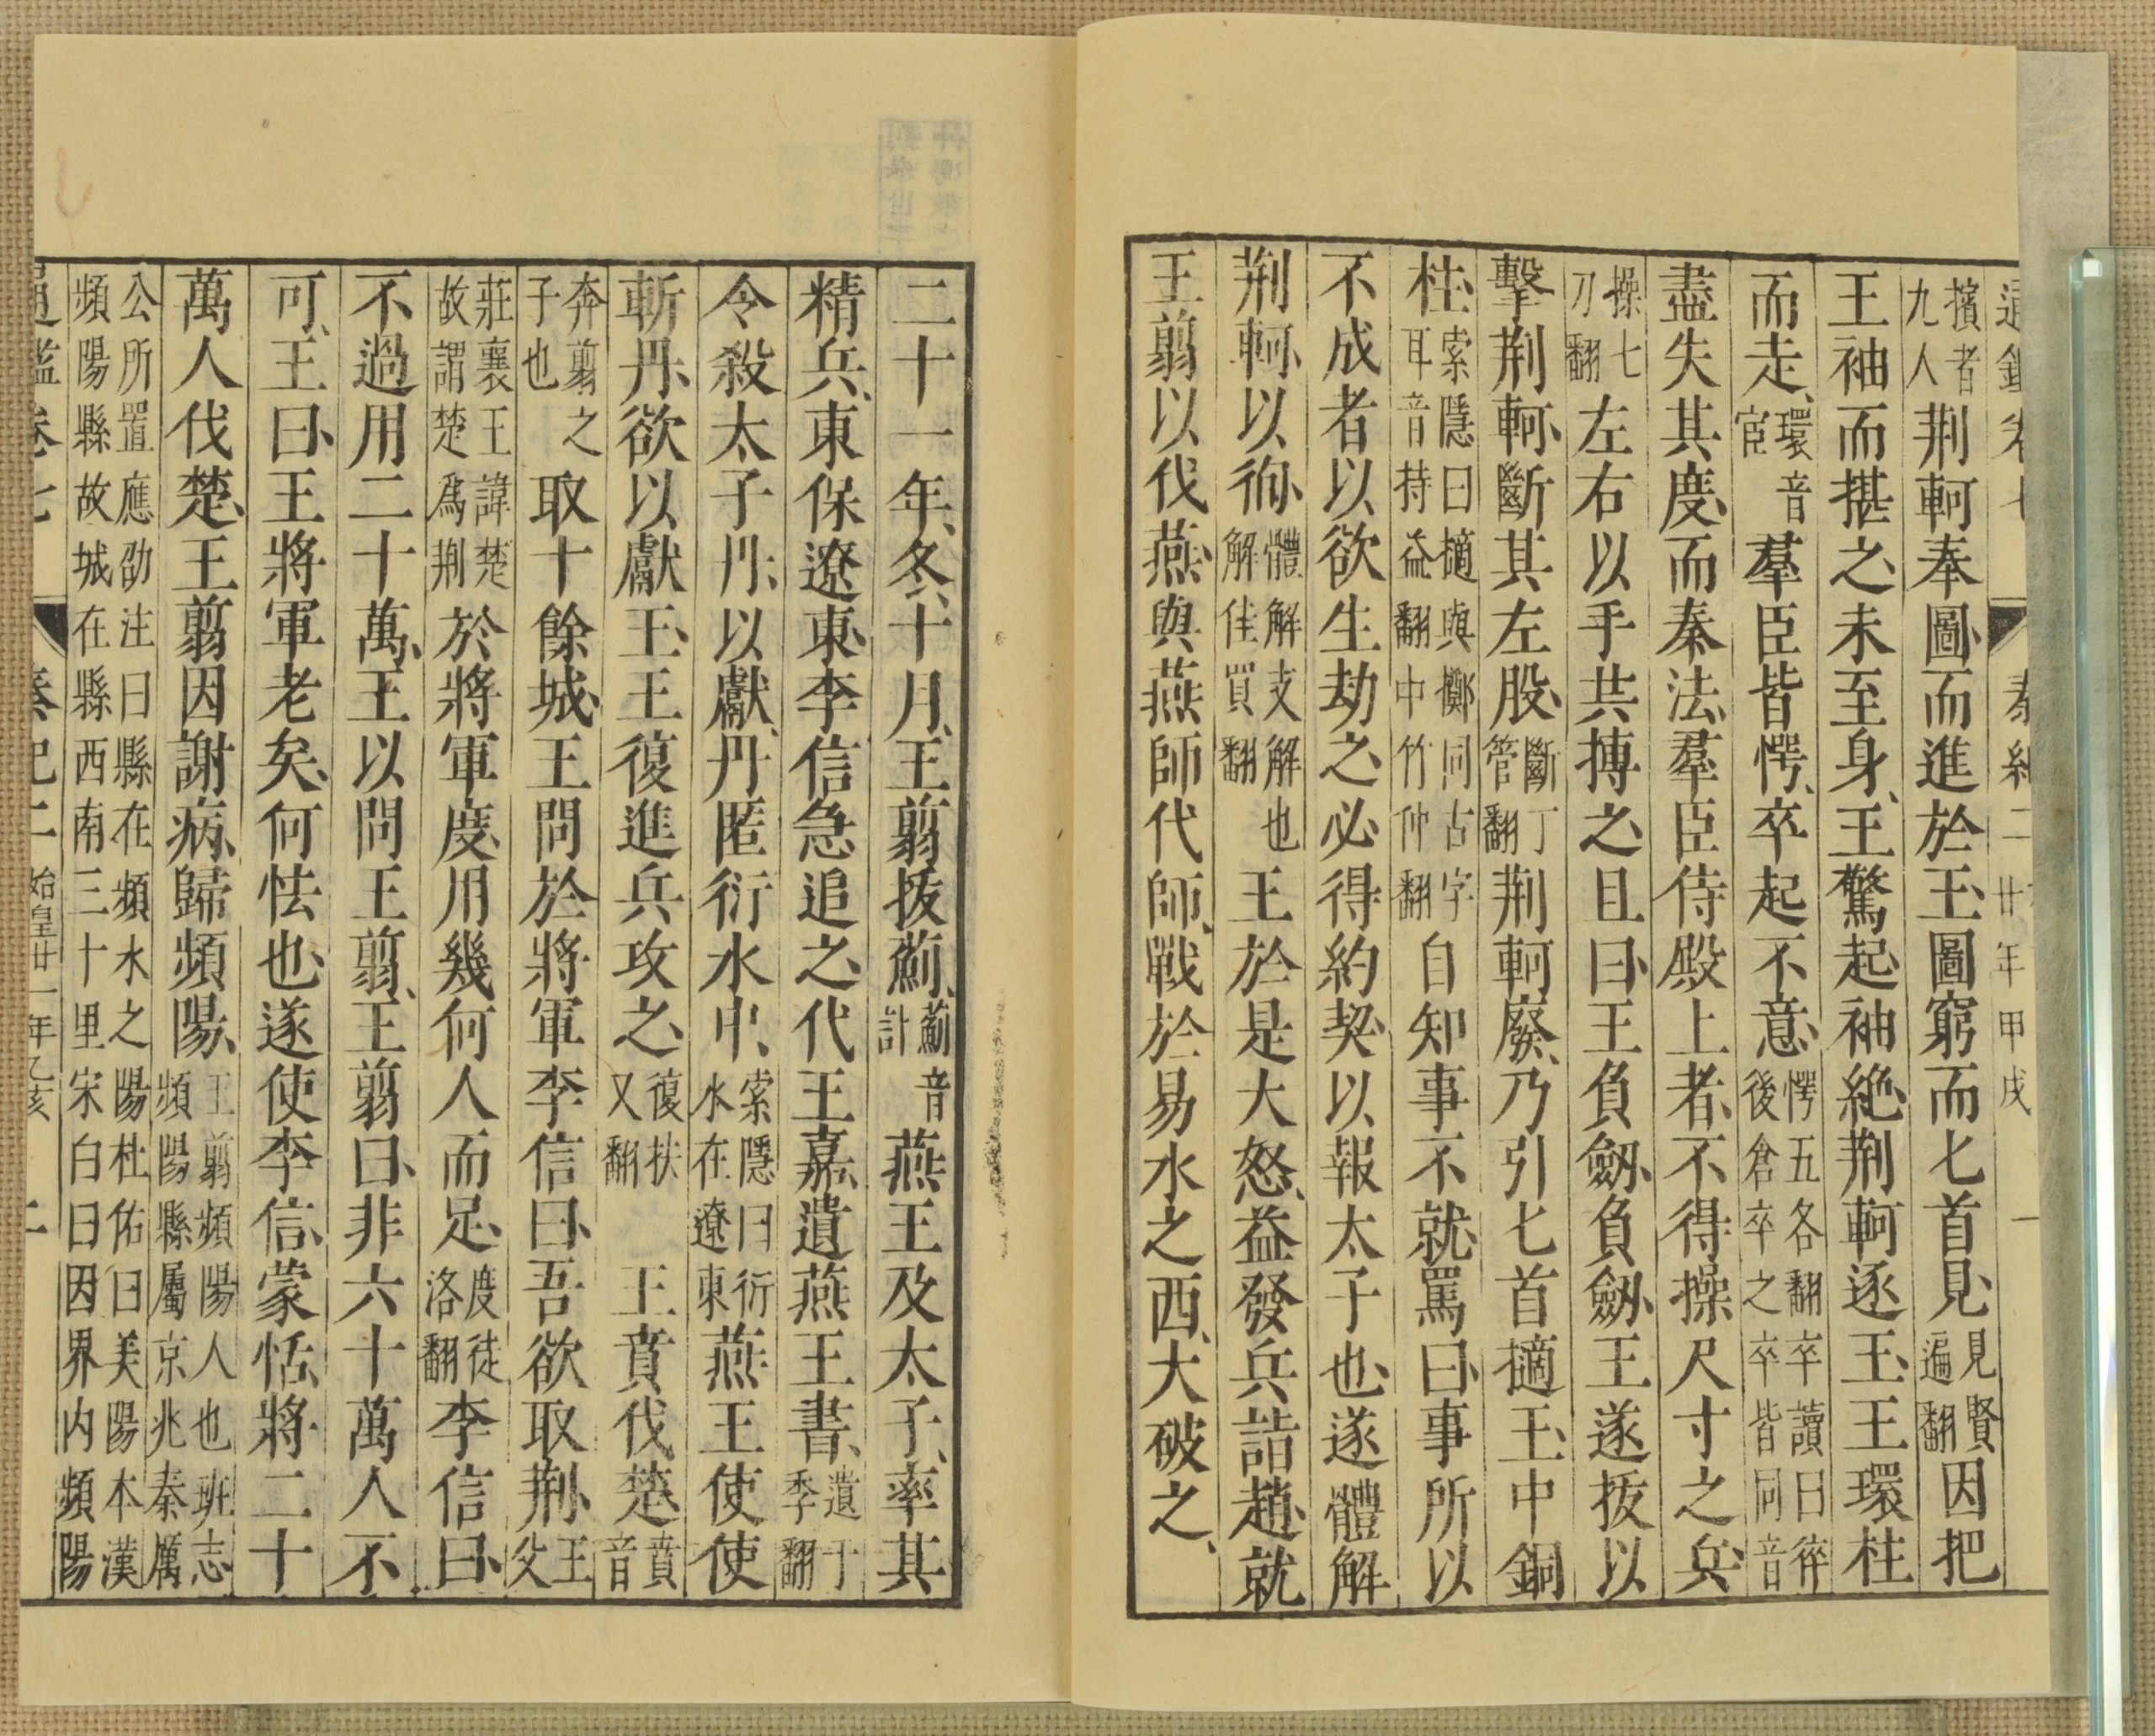 通鑑卷七 秦紀二 廿年甲戌 一
擯者九人荆軻奉圖、而進於王、圖窮而匕首見、見賢遍翻因把
王袖而揕之、未至身、王驚起、袖絶、荆軻逐王、王環柱
而走、環音宦羣臣皆愕、卒起不意、愕五各翻卒讀曰猝後倉卒之卒皆同音
盡失其度、而秦法、羣臣侍殿上者、不得操尺寸之兵、
操七刀翻左右以手共搏之、且曰、王負劔、負劔、王遂拔以
擊荆軻、斷其左股、斷丁管翻荆軻廢、乃引匕首擿王、中銅
柱、索隱曰擿與擲同古字耳音持益翻中竹仲翻自知事不就、罵曰、事所以
不成者、以欲生劫之、必得約契、以報太子也、遂體解
荆軻、以徇、體解支解也解佳買翻王於是大怒、益發兵詣趙、就
王翦以伐燕、與燕師代師、戰於易水之西、大破之、
二十一年、冬、十月、王翦拔薊、薊音計燕王及太子、率其
精兵、東保遼東、李信急追之、代王嘉、遺燕王書、遺于季翻
令殺太子丹、以獻、丹匿衍水中、索隱曰衍水在遼東燕王使使
斬丹、欲以獻王、王復進兵攻之、復扶又翻王賁伐楚、賁音
奔翦之子也取十餘城、王問於將軍李信曰、吾欲取荆、王父
莊襄王諱楚故謂楚爲荆於將軍度、用幾何人而足、度徒洛翻李信曰、
不過用二十萬、王以問王翦、王翦曰、非六十萬人不
可、王曰、王將軍老矣、何怯也、遂使李信、蒙恬、將二十
萬人伐楚、王翦因謝病、歸頻陽、王翦頻陽人也班志頻陽縣屬京兆秦厲
公所置應劭注曰縣在頻水之陽杜佑曰美陽本漢頻陽縣故城在縣西南三十里宋白曰因界内頻陽
通鑑卷七 秦紀二 始皇廿一年乙亥 二